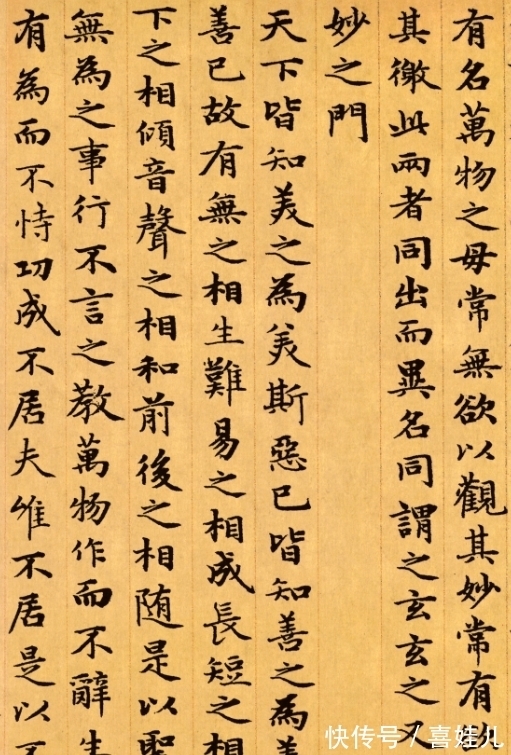 有名萬物之毋常無欲以觀其妙常有
其徼此兩者同出而異名同謂之玄玄之又
妙之門
天下皆知美之為美斯惡已皆知善之為
善已故有無之相生難易之相成長短之相
下之相傾音聲之相和前後之相随是以聖
無為之事行不言之教萬物作而不辭生
有為而不恃功成不居夫惟不居是以不
快传号/喜娃儿